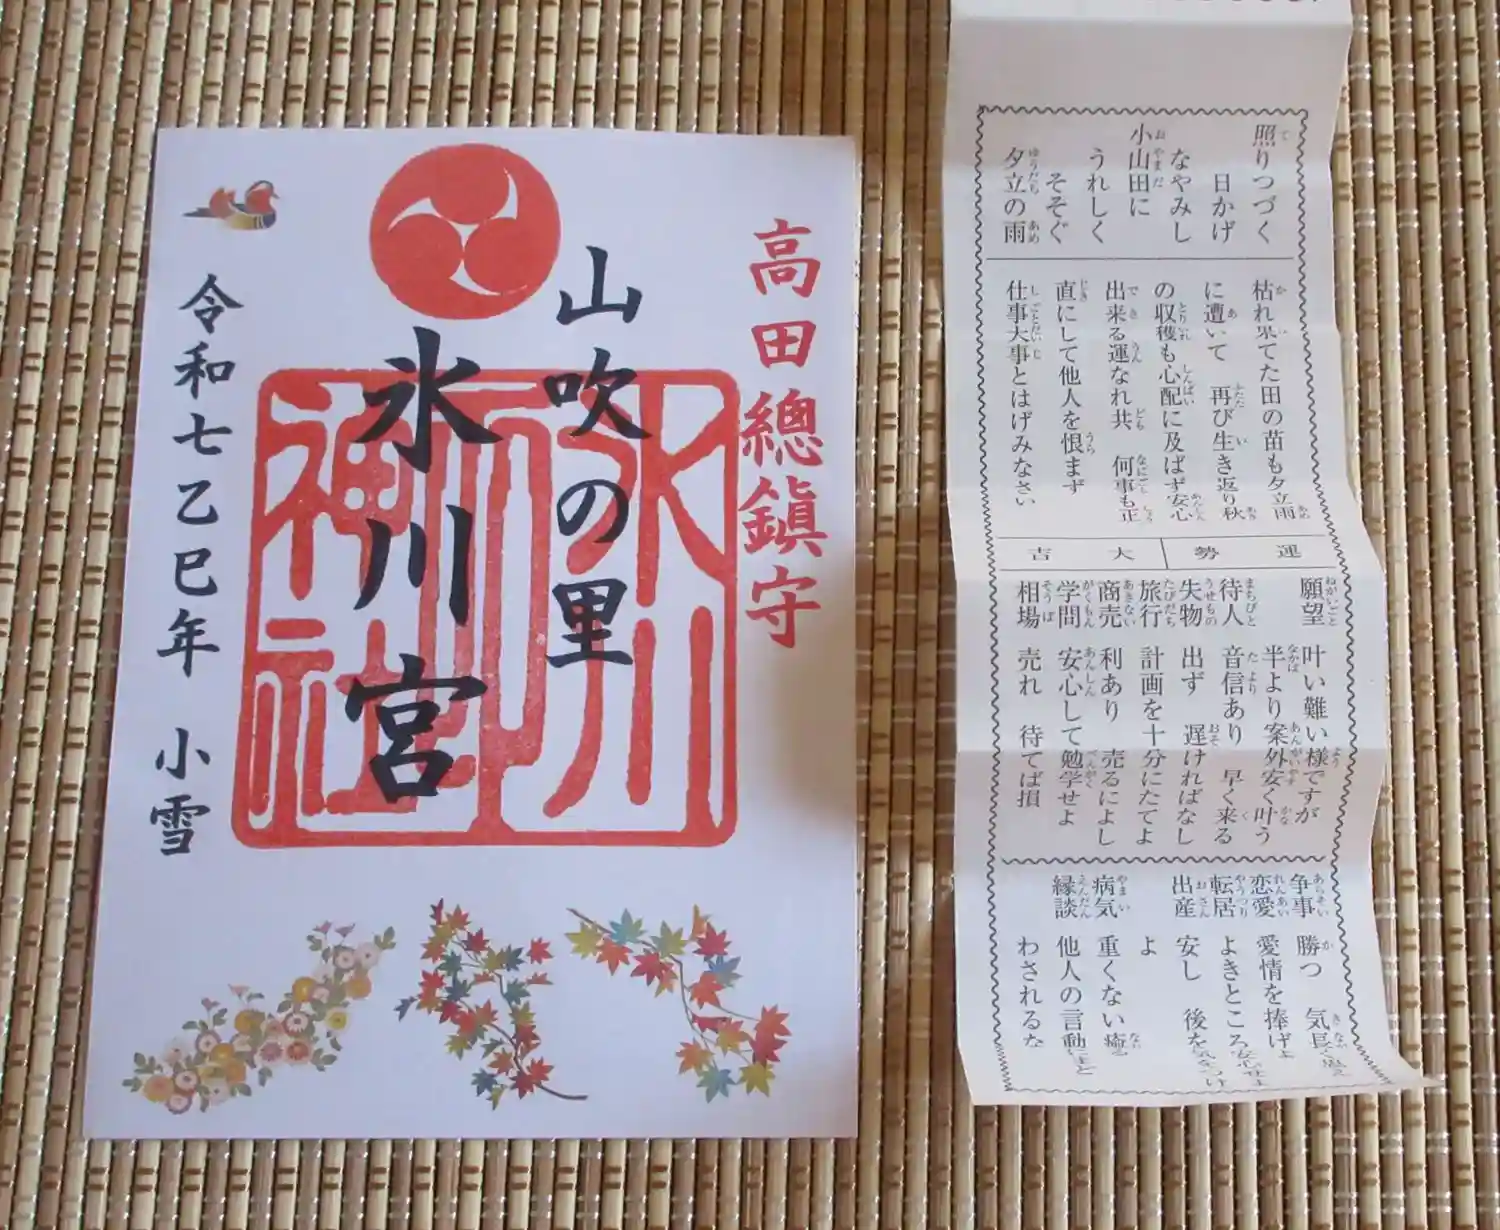 高田總鎮守
山吹の里
氷川宮
氷川
神社
令和七乙巳年 小雪
照りつづく
日かげ
なやみし
小山田に
うれしく
そそぐ
夕立の雨
枯れ果てた田の苗も夕立雨
に遭いて 再び生き返り秋
の収穫も心配に及ばず安心
出来る運なれ共 何事も正
直にして他人を恨まず
仕事大事とはげみなさい
運勢 大吉
願望 叶い難い様ですが
半より案外安く叶う
待人 音信あり 早く来る
失物 出ず 遅ければなし
旅行 計画を十分にたてよ
商売 利あり 売るによし
学問 安心して勉学せよ
相場 売れ 待てば損
争事 勝つ
恋愛 愛情を捧げよ
転居 よきところ
出産 安し 後を
よ
病気 重くない
縁談 他人の言動
わされるな